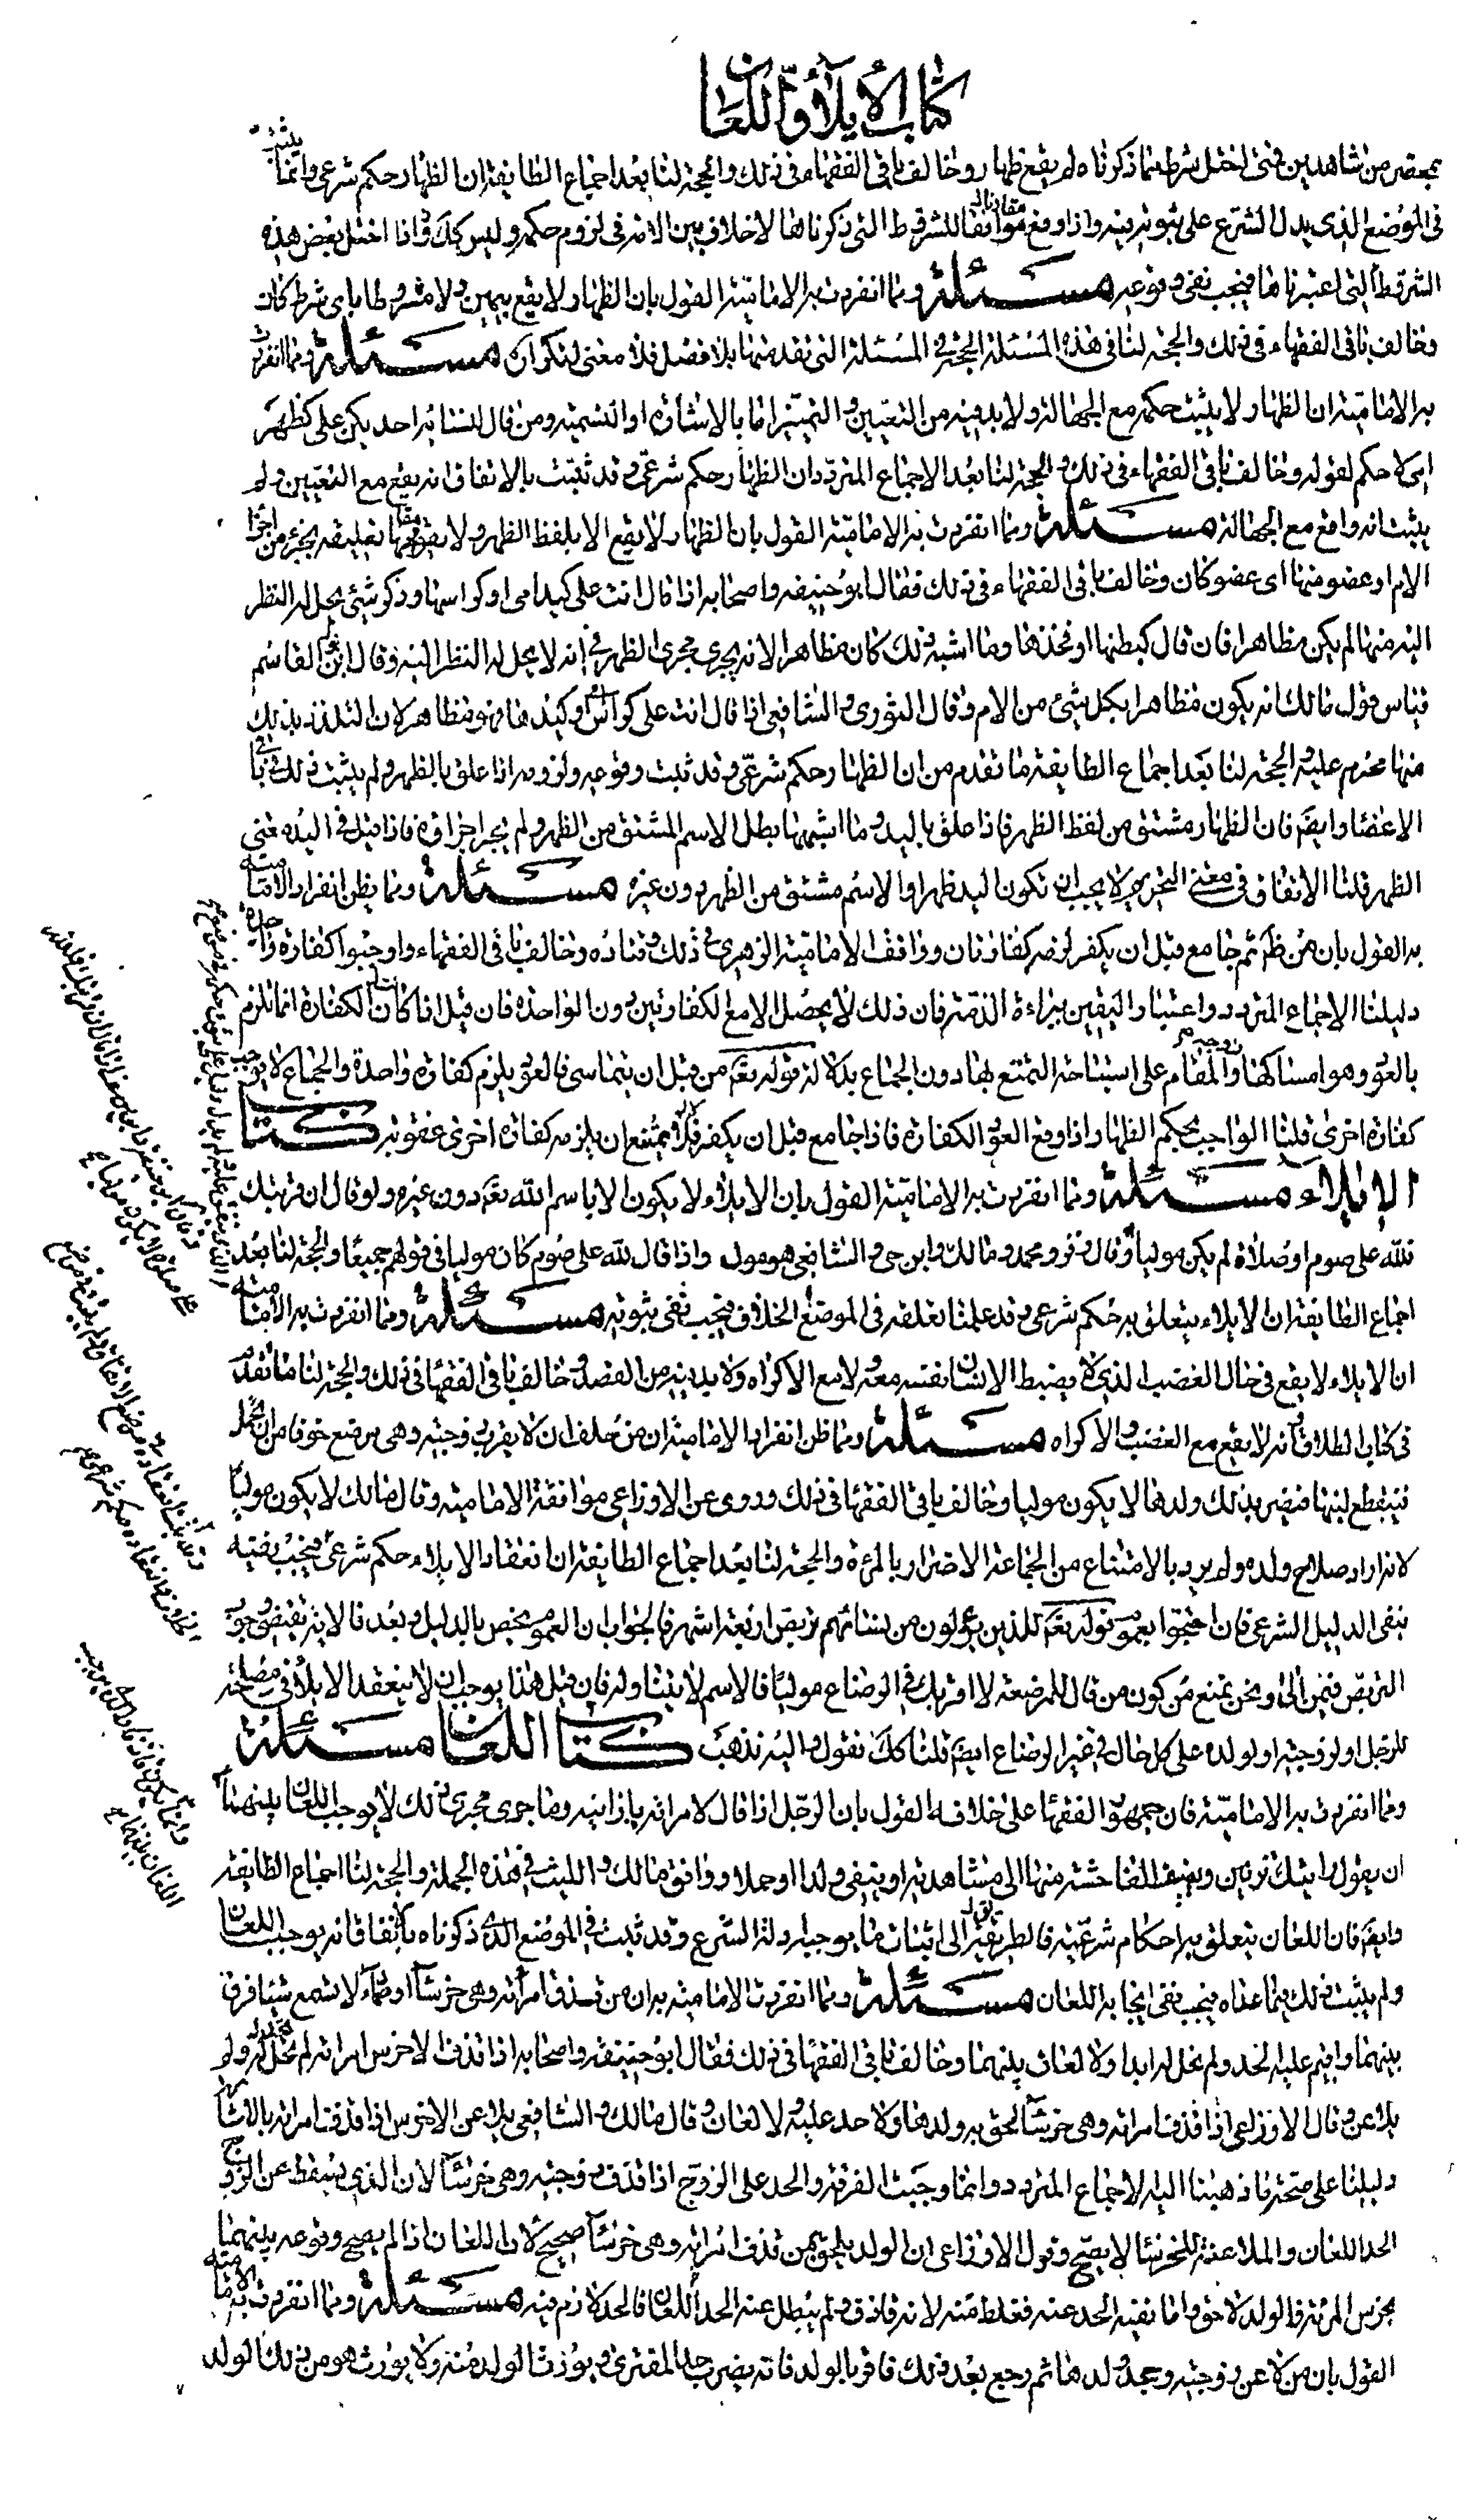 كتاب الإيلاء واللعان
بمحضر من شاهدين فمتى اختل شرط مما ذكرناه لم يقع ظهار وخالف باقي الفقهاء في ذلك والحجة لنا بعد اجماع الطايفة ان الظهار حكم شرعي وانما يثبت
في الموضع الذي يدل الشرع على ثبوته فيه واذا وقع موافقا للشروط التي ذكرناها لا خلاف بين الامة في لزوم حكمه وليس كك اذا اختل بعض هذه
الشروط التي اعتبرناها فيجب نفي وقوعه مسئلة ومما انفردت به الامامية القول بان الظهار لا يقع بيمين ولا مشروطا باى شرط كان
وخالف باقي الفقهاء في ذلك والحجة لنا في هذه المسئلة الحجة في المسئلة التي تقدمتها بلا فصل فلا معنى لتكراره مسئلة ومما انفردت
به الامامية ان الظهار لا يثبت حكمه مع الجهالة ولا بد فيه من التعيين والتمييز اما بالاشارة او التسمية ومن قال لنسائه احديكن على كظهر
امى لا حكم لقوله وخالف باقي الفقهاء في ذلك والحجة لنا بعد الاجماع المتردد ان الظهار حكم شرعي وقد ثبت بالاتفاق انه يقع مع التعيين ولم
يثبت انه واقع مع الجهالة مسئلة ومما انفردت به الامامية القول بان الظهار لا يقع الا بلفظ الظهر ولا يقوم مقامها تعليقه بجزء من اجزا
الام او عضو منها اى عضو كان وخالف باقي الفقهاء في ذلك فقال ابو حنيفة واصحابه اذا قال انت على كيد امى او كراسها وذكر شئ يحل له النظر
اليه منها لم يكن مظاهرا فان قال كبطنها او فخذها وما اشبه ذلك كان مظاهرا لانه يجرى مجرى الظهر في انه لا يحل له النظر اليه وقال ابن القاسم
قياس قول مالك انه يكون مظاهرا بكل شئ من الام وقال الثوري والشافعي اذا قال انت على كراس امى او كيدها فهو مظاهر لان التلذذ بذلك
منها محرم عليه والحجة لنا بعد اجماع الطايفة ما تقدم من ان الظهار حكم شرعي وقد ثبت وقوعه ولزومه اذا علق بالظهر ولم يثبت ذلك في باقي
الاعضاء وايضا فان الظهار مشتق من لفظ الظهر فاذا علق باليد وما اشبهها بطل الاسم المشتق من الظهر ولم يجر اجزاؤه فاذا قيل في اليد معنى
الظهر قلنا الاتفاق في معنى التحريم لا يجب ان تكون اليد ظهرا والاسم مشتق من الظهر دون غيره مسئلة ومما يظن انفراد الامامية
به القول بان من ظاهر ثم جامع قبل ان يكفر لزمه كفارتان ووافق الامامية الزهري في ذلك وقتاده وخالف باقي الفقهاء واوجبوا كفارة واحدة
دليلنا الاجماع المتردد واعتبار اليقين ببراءة الذمة فان ذلك لا يحصل الا مع الكفارتين دون الواحدة فان قيل اذا كانت الكفارة انما تلزم
بالعود وهو امساكها والمقام على استباحة التمتع بها دون الجماع بدلالة قوله تعالى من قبل ان يتماسا فالعود يلزم كفارة واحدة والجماع لا يوجب
كفارة اخرى قلنا الواجب بحكم الظهار اذا وقع العود الكفارة فاذا جامع قبل ان يكفر فلا يمتنع ان يلزمه كفارة اخرى عقوبة كتاب
الايلاء مسئلة ومما انفردت به الامامية القول بان الايلاء لا يكون الا باسم الله تعالى دون غيره ولو قال ان قربتك
فلله على صوم او صلاة لم يكن موليا وقال زفر ومحمد ومالك وابن حى والشافعي هو مول واذا قال لله على صوم كان موليا في قولهم جميعا والحجة لنا بعد
اجماع الطايفة ان الايلاء يتعلق به حكم شرعي وقد علمنا تعلقه في الموضع الخلاف فيجب نفى ثبوته مسئلة ومما انفردت به الامامية
ان الايلاء لا يقع في حال الغضب الذي لا يضبط الانسان نفسه معه ولا مع الاكراه ولا بد فيه من القصد وخالف باقي الفقهاء في ذلك والحجة لنا ما تقدم
في كتاب الطلاق انه لا يقع مع الغضب والاكراه مسئلة ومما ظن انفراد الامامية ان من حلف ان لا يقرب زوجته وهي مرضع خوفا من ان تحمل
فينقطع لبنها فيضر بذلك ولدها لا يكون موليا وخالف باقي الفقهاء في ذلك وروى عن الاوزاعي موافقة الامامية وقال مالك لا يكون موليا
لانه اراد صلاح ولده ولم يرد بالامتناع من الجماعة الاضرار بالمرءة والحجة لنا بعد اجماع الطايفة ان انعقاد الايلاء حكم شرعي فيجب نفيه
بنفى الدليل الشرعي فان احتجوا بعموم قوله تعالى للذين يؤلون من نسائهم تربص اربعة اشهر فالجواب ان العموم يخص بالدليل وبعد فالاية تقتضي وجوب
التربص فيمن الى ونحن نمنع من كون من قال للمرضعة لا اقربك في الرضاع موليا فالاسم لا يتناوله فان قيل هذا يوجب ان لا ينعقد الايلاء في مصلحة
للرجل او لزوجته او لولده على كل حال في غير الرضاع ايضا قلنا كك نقول واليه نذهب كتاب اللعان مسئلة
ومما انفردت به الامامية فان جمهور الفقهاء على خلافه القول بان الرجل اذا قال لامراته يا زانية وما جرى مجرى ذلك لا يوجب اللعان بينهما
ان يقول رايتك تزنين ويضيف الفاحشة منها الى مشاهدته او ينفى ولدا او حملا ووافق مالك والليث في هذه الجملة والحجة لنا اجماع الطايفة
وايضا فان اللعان يتعلق به احكام شرعية فالطريقة الى اثبات ما يوجبه ادلة الشرع وقد ثبت في الموضع الذي ذكرناه بالاتفاق انه يوجب اللعان
ولم يثبت ذلك فيما عداه فيجب نفى ايجابه اللعان مسئلة ومما انفردت الامامية به ان من قذف امرأته وهي خرساء او صماء لا تسمع شيئا فرق
بينهما واقيم عليه الحد ولم تحل له ابدا ولا لعان بينهما وخالف باقي الفقهاء في ذلك فقال ابو حنيفة واصحابه اذا قذف الاخرس امراته لم يحد ولم
يلاعن وقال الاوزاعي اذا قذف امراته وهي خرساء لحق به ولدها ولا حد عليه ولا لعان وقال مالك والشافعي يلاعن الاخرس اذا قذف امراته بالاشارة
دليلنا على صحة ما ذهبنا اليه الاجماع المتردد وانما وجبت الفرقة والحد على الزوج اذا قذف زوجته وهي خرساء لان الذي يسقط عن الزوج
الحد اللعان والملاعنة للخرساء لا يصح وقول الاوزاعي ان الولد يلحق بمن قذف امرأته وهي خرساء صحيح لان اللعان اذا لم يصح وقوعه بينهما
بخرس المرءة فالولد لاحق واما نفيه الحد عنه فغلط منه لانه قاذف ولم يبطل عنه الحد اللعان فالحد لازم فيه مسئلة ومما انفردت به الامامية
القول بان من لاعن زوجته وجحد ولدها ثم رجع بعد ذلك فاقر بالولد فانه يضرب حد المفترى ويورث الولد منه ولا يورث هو من ذلك الولد